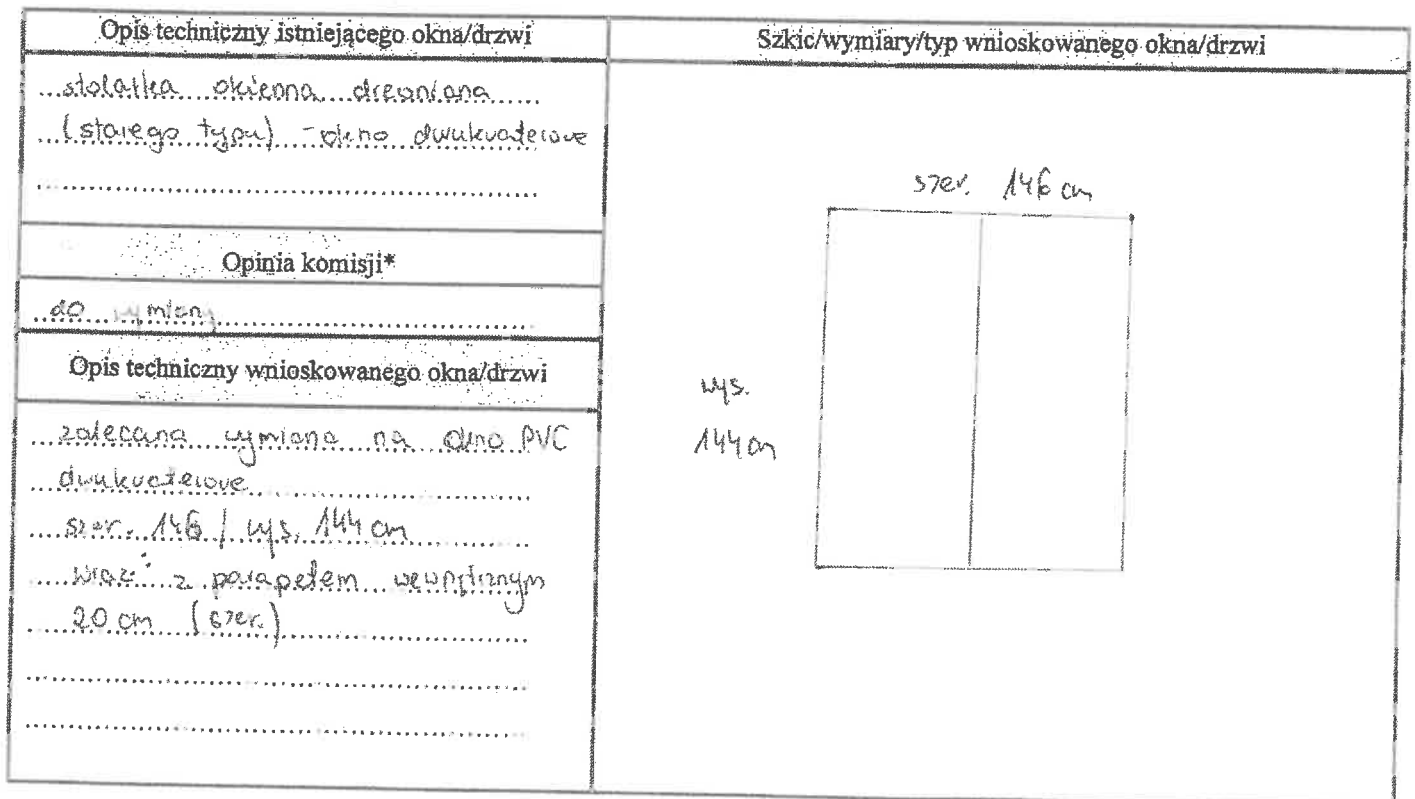 Opis techniczny istniejącego okna/drzwi
stolarka okienna drewniana
(starego typu) - okno dwukwaterowe
Opinia komisji*
do wymiany
Opis techniczny wnioskowanego okna/drzwi
zalecana wymiana na okno PVC
dwukwaterowe
szer. 146 / wys. 144 cm
wraz z parapetem wewnętrznym
20 cm (szer.)
Szkic/wymiary/typ wnioskowanego okna/drzwi
szer. 146 cm
wys.
144 cm